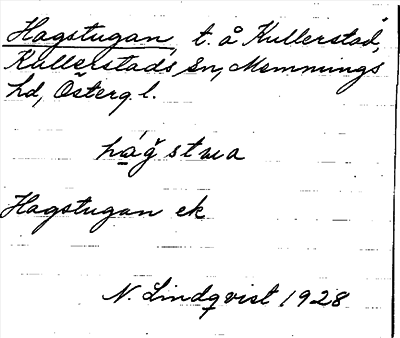 Hagstugan, t. å Kullerstad,
Kullerstads sn, Memmings
hd, Österg. l.
Hagstugan ek
N. Lindqvist 1928